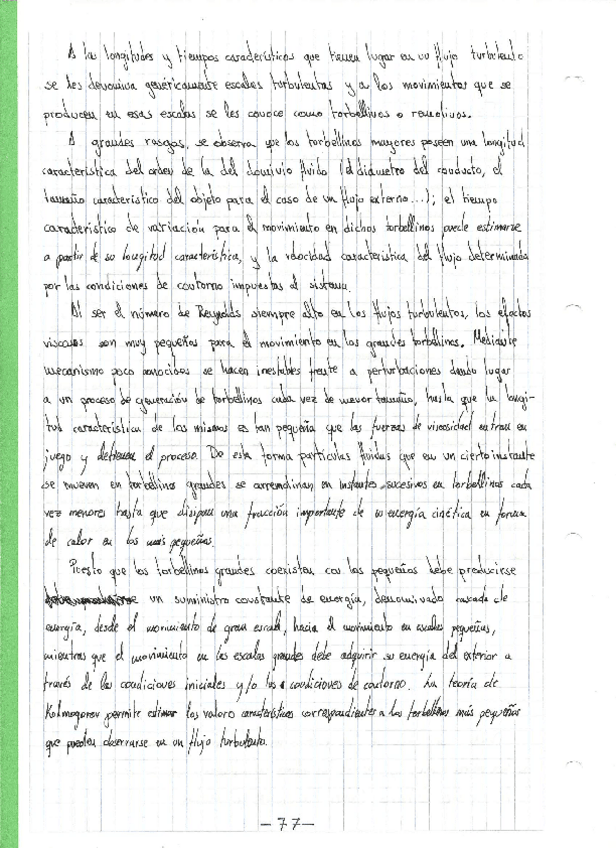 A las longitudes y tiempos característicos que tienen lugar en un flujo turbulento
se les denomina genéricamente escalas turbulentas y a los movimientos que se
producen en esas escalas se les conoce como torbellinos o remolinos.
A grandes rasgos, se observa que los torbellinos mayores poseen una longitud
característica del orden de la del dominio fluido (el diámetro del conducto, el
tamaño característico del objeto para el caso de un flujo externo...); el tiempo
característico de variación para el movimiento en dichos torbellinos puede estimarse
a partir de su longitud característica, y la velocidad característica del flujo determinada
por las condiciones de contorno impuestas al sistema.
Al ser el número de Reynolds siempre alto en los flujos turbulentos, los efectos
viscosos son muy pequeños para el movimiento en los grandes torbellinos. Mediante
mecanismo poco conocidos se hacen inestables frente a perturbaciones dando lugar
a un proceso de generación de torbellinos cada vez de menor tamaño, hasta que la longi-
tud característica de los mismos es tan pequeña que las fuerzas de viscosidad entran en
juego y detienen el proceso. De esta forma partículas fluidas que en un cierto instante
se mueven en torbellinos grandes se arremolinan en instantes sucesivos en torbellinos cada
vez menores hasta que disipan una fracción importante de su energía cinética en forma
de calor en los más pequeños.
Puesto que los torbellinos grandes coexisten con los pequeños debe producirse
un suministro constante de energía, denominado cascada de
energía, desde el movimiento de gran escala, hacia el movimiento en escalas pequeñas,
mientras que el movimiento en las escalas grandes debe adquirir su energía del exterior a
través de las condiciones iniciales y/o las condiciones de contorno. La teoría de
Kolmogorov permite estimar los valores característicos correspondientes a los torbellinos más pequeños
que pueden observarse en un flujo turbulento.
-77-